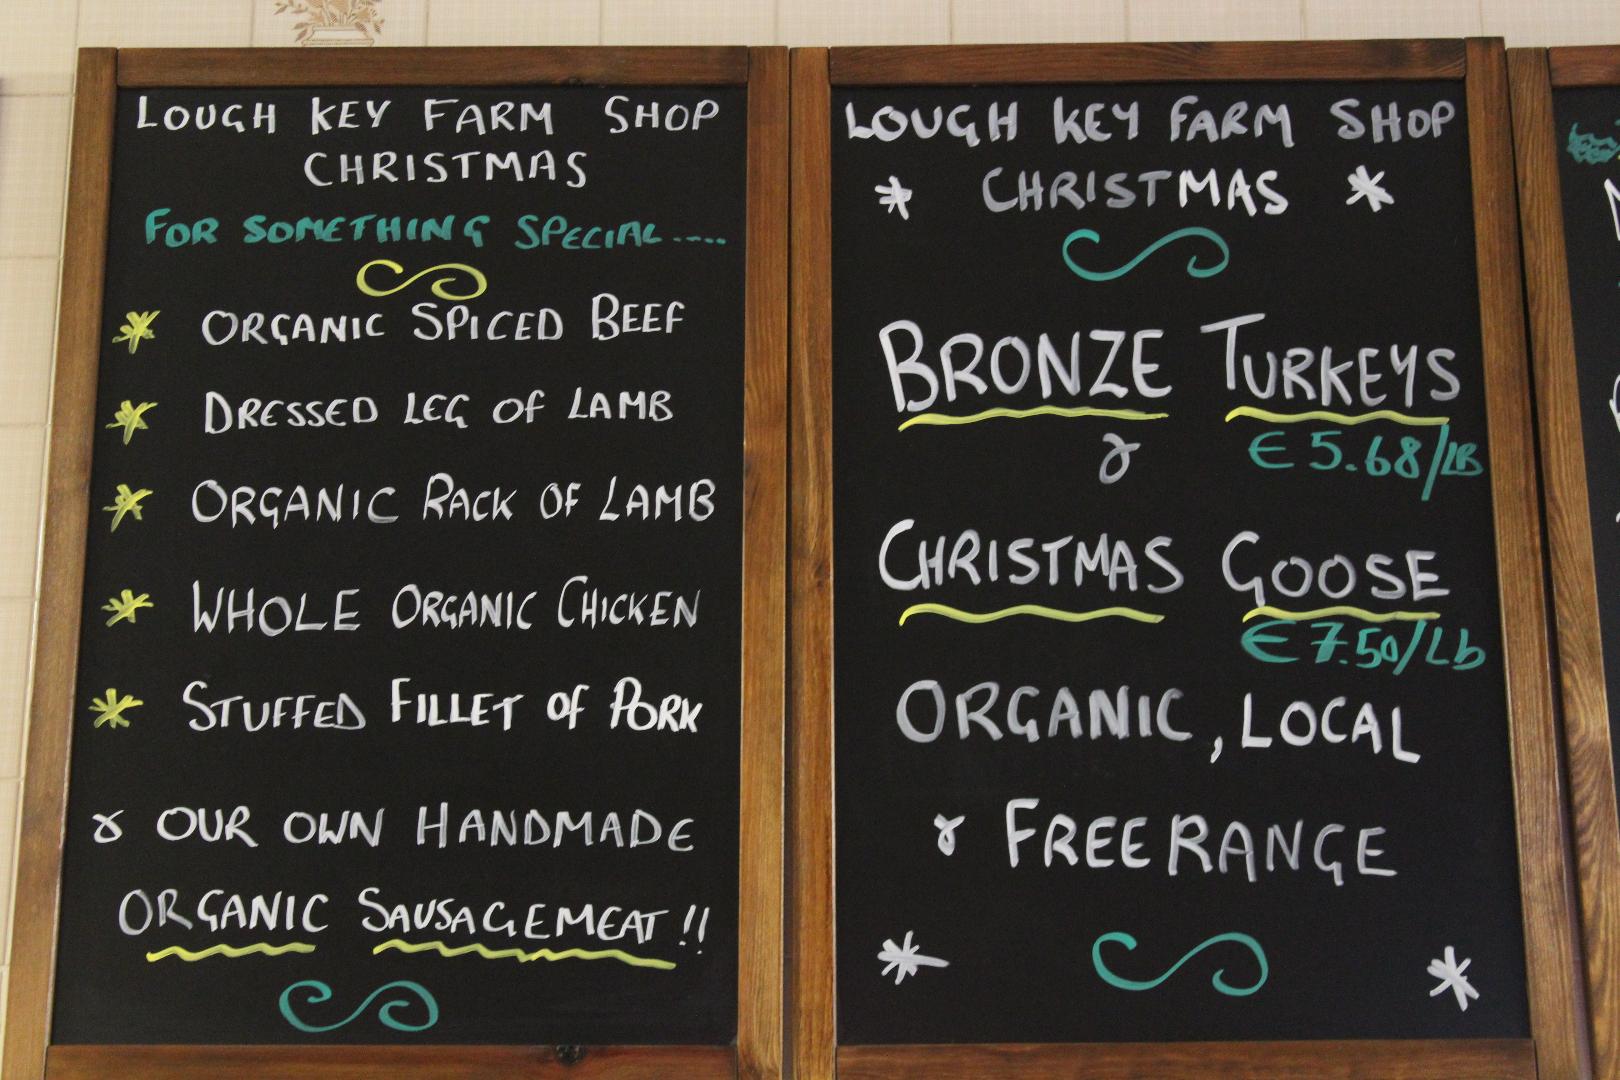 LOUGH KEY FARM SHOP
CHRISTMAS
FOR SOMETHING SPECIAL.....
* ORGANIC SPICED BEEF
* DRESSED LEG OF LAMB
* ORGANIC RACK OF LAMB
* WHOLE ORGANIC CHICKEN
* STUFFED FILLET OF PORK
& OUR OWN HANDMADE
ORGANIC SAUSAGEMEAT!!
LOUGH KEY FARM SHOP
* CHRISTMAS *
BRONZE TURKEYS
& € 5.68/LB
CHRISTMAS GOOSE
€ 7.50/Lb
ORGANIC, LOCAL
& FREE RANGE